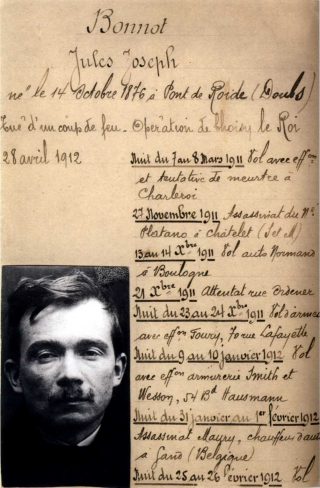 Bonnot
Jules Joseph
né le 14 Octobre 1876 à Pont de Roide (Doubs)
Tué d'un coup de feu - Opération de Choisy le Roi
28 avril 1912
Nuit du 7 au 8 Mars 1911 Vol avec effon
et tentative de meurtre à
Charleroi
27 Novembre 1911 Assassinat du Né
Platano à Chatelet (S et M)
13 au 14 Xbre 1911 Vol auto Normand
à Boulogne
21 Xbre 1911 Attentat rue Ordener
Nuit du 23 au 24 Xbre 1911 Vol d'armes
avec effon Foury, 70 rue Lafayette
Nuit du 9 au 10 janvier 1912 Vol
avec effon armurerie Smith et
Wesson, 54 Bd Hausmann
Nuit du 31 janvier au 1er février 1912
Assassinat Maury, chauffeur d'auto
à Gand (Belgique)
Nuit du 25 au 26 février 1912 Vol